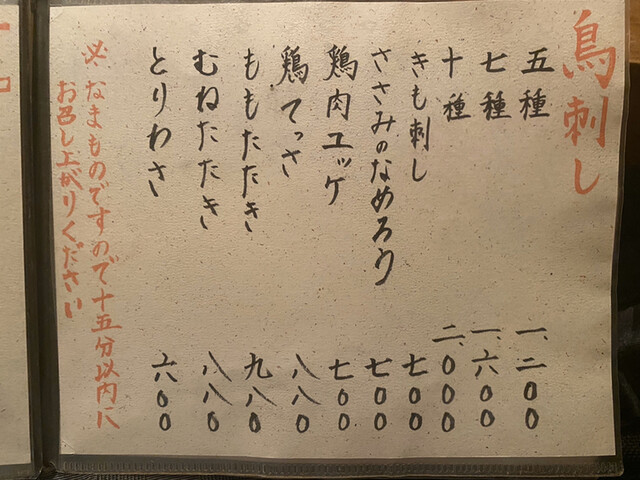 鳥刺し
五種 一、二００
七種 一、六００
十種 二、０００
きも刺し 七００
ささみのなめろう 七００
鶏肉ユッケ 七００
鶏てっさ 八八０
ももたたき 九八０
むねたたき 八八０
とりわさ 六００
※ なまものですので十五分以内に
お召し上がりください